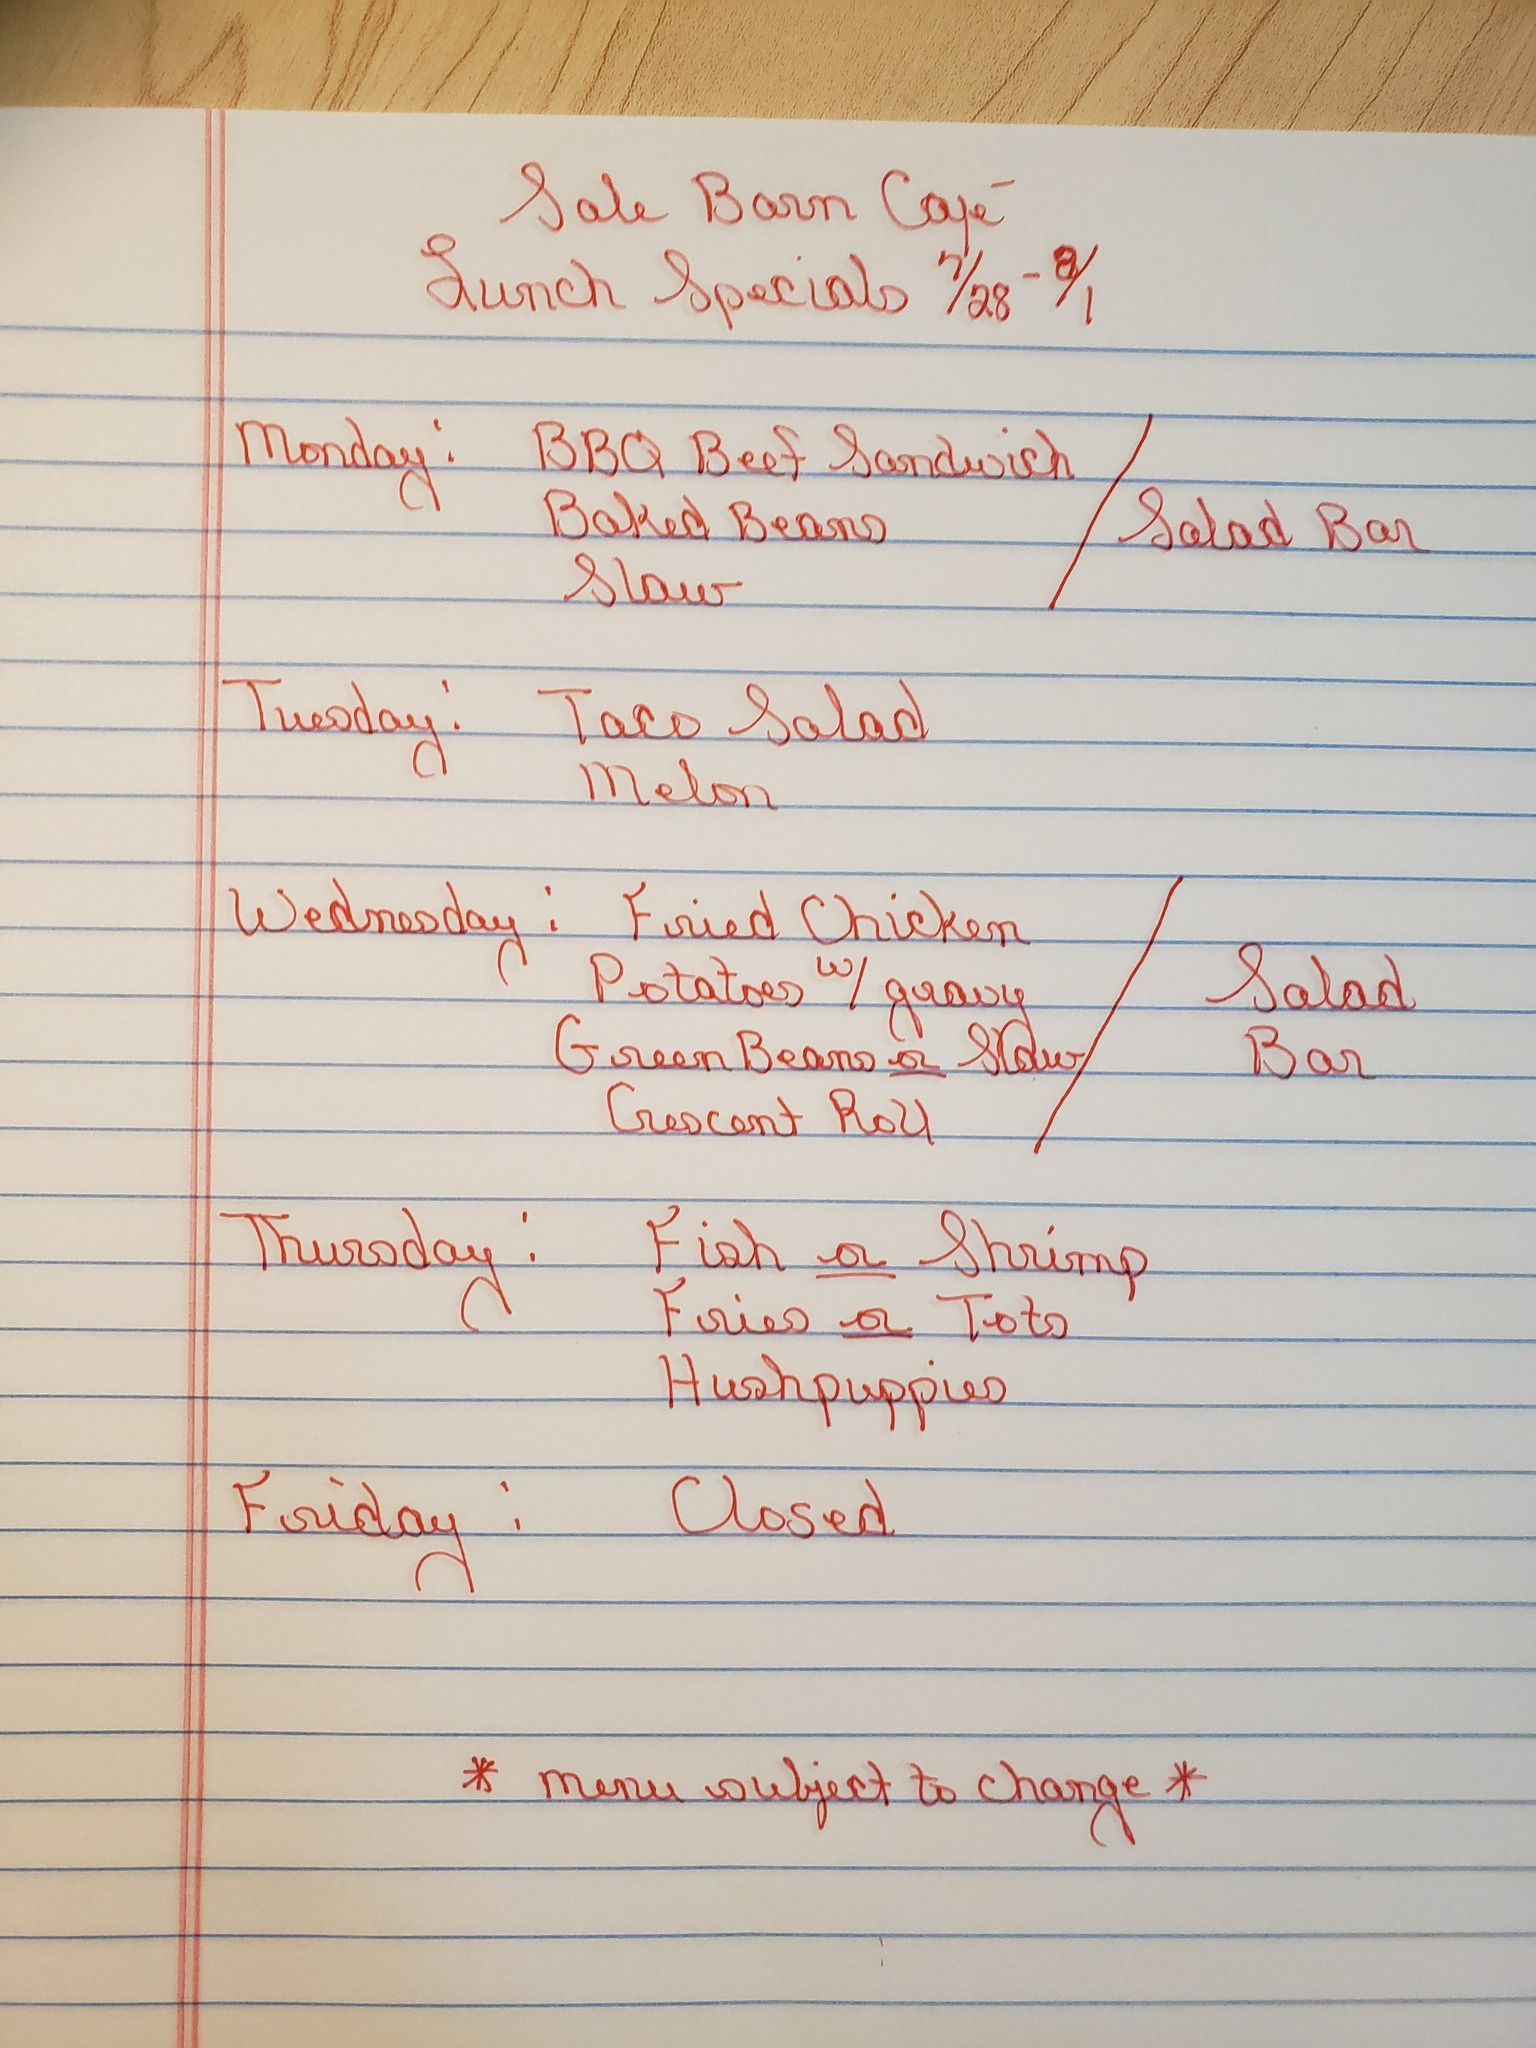 Sale Barn Café
Lunch Specials 7/28 - 8/1
Monday: BBQ Beef Sandwich
Baked Beans / Salad Bar
Slaw
Tuesday: Taco Salad
Melon
Wednesday: Fried Chicken
Potatoes w/ gravy / Salad
Green Beans or Slaw Bar
Crescent Roll
Thursday: Fish or Shrimp
Fries or Tots
Hushpuppies
Friday: Closed
* menu subject to change *